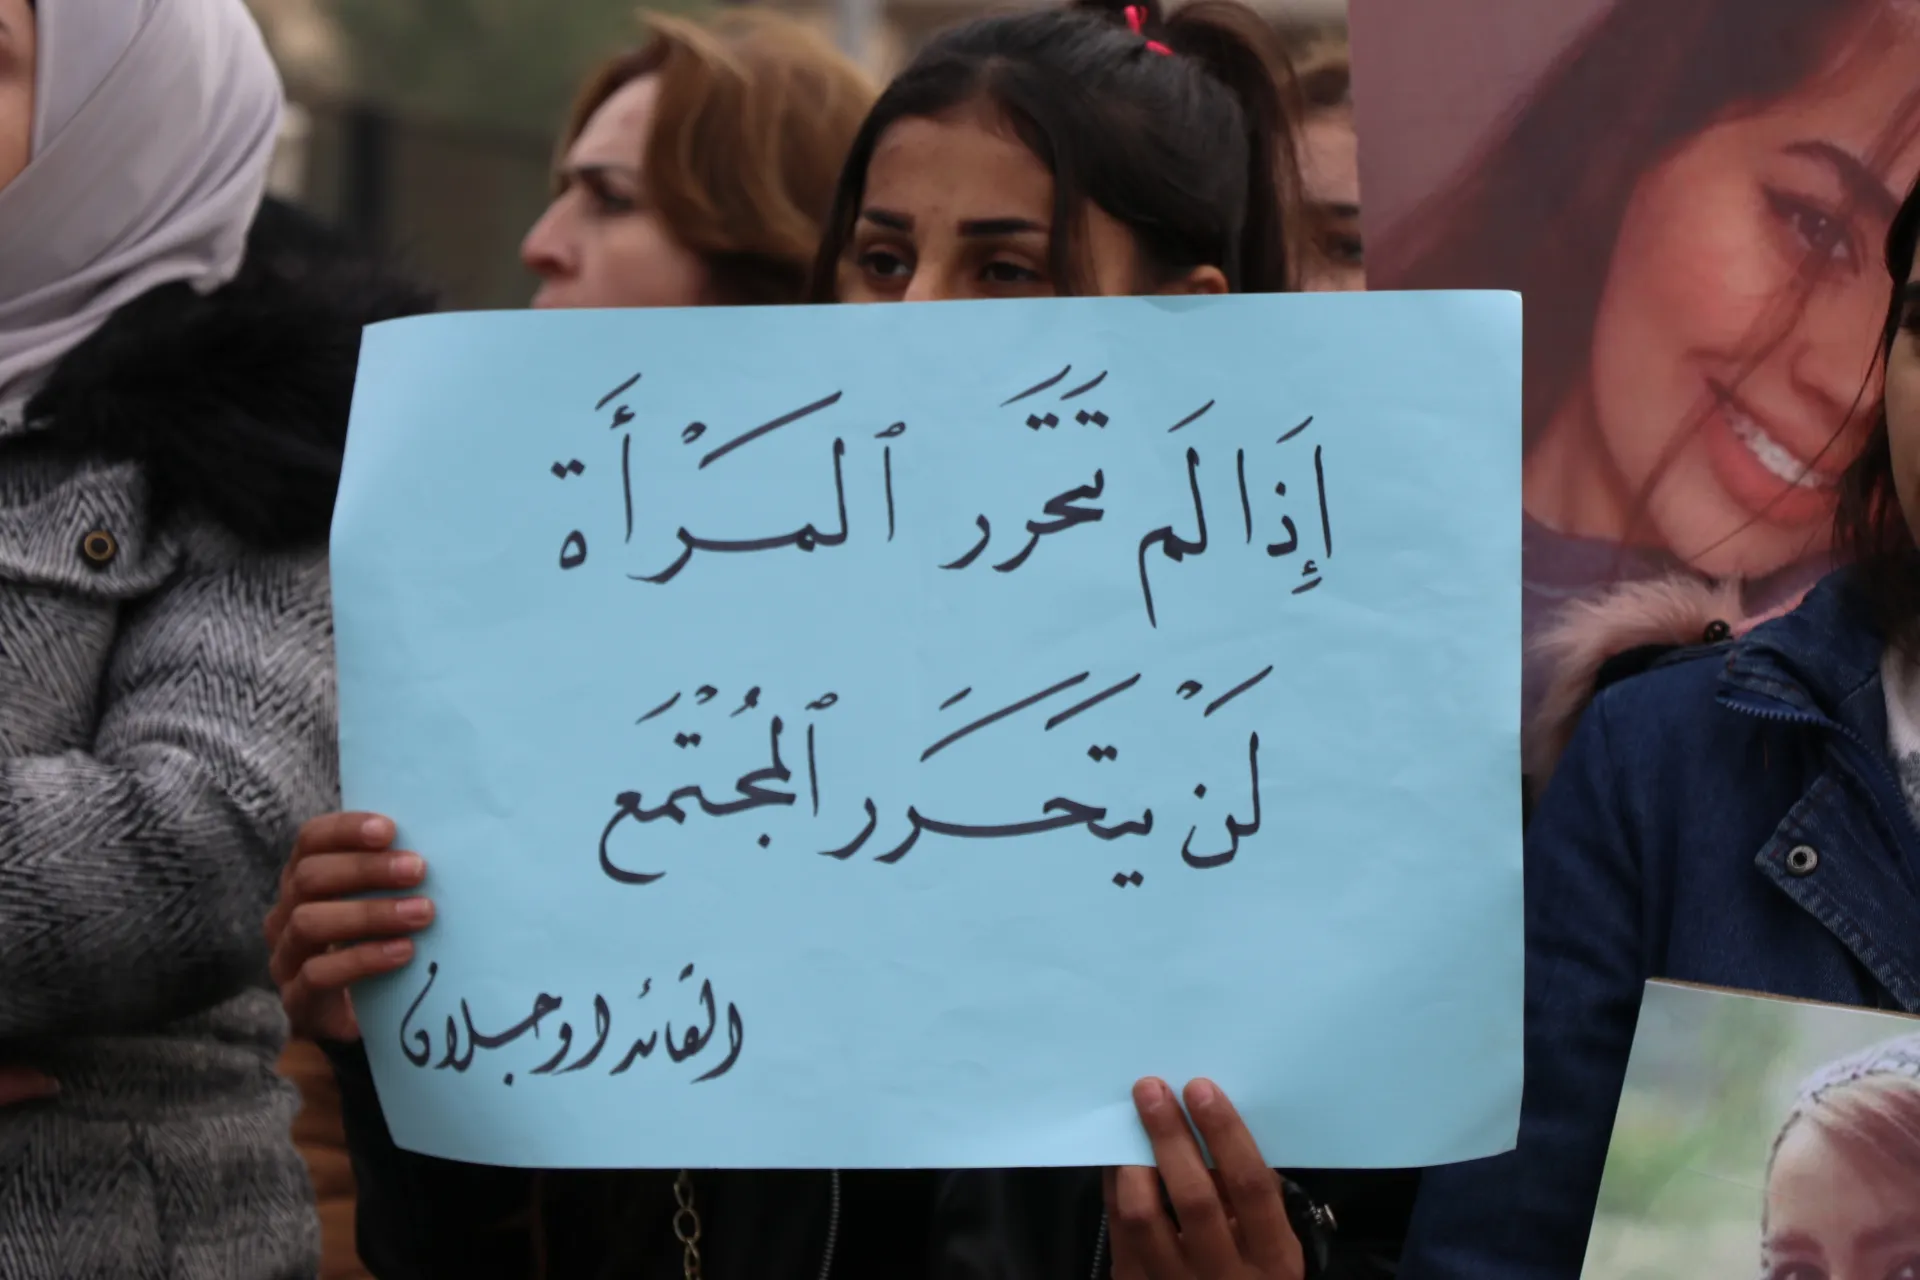 إِذَا لَم تَتَحَرَر ٱلمَرْأَة
لَنْ يَتَحَرَر ٱلمُجْتَمَع
القائد اوجلان